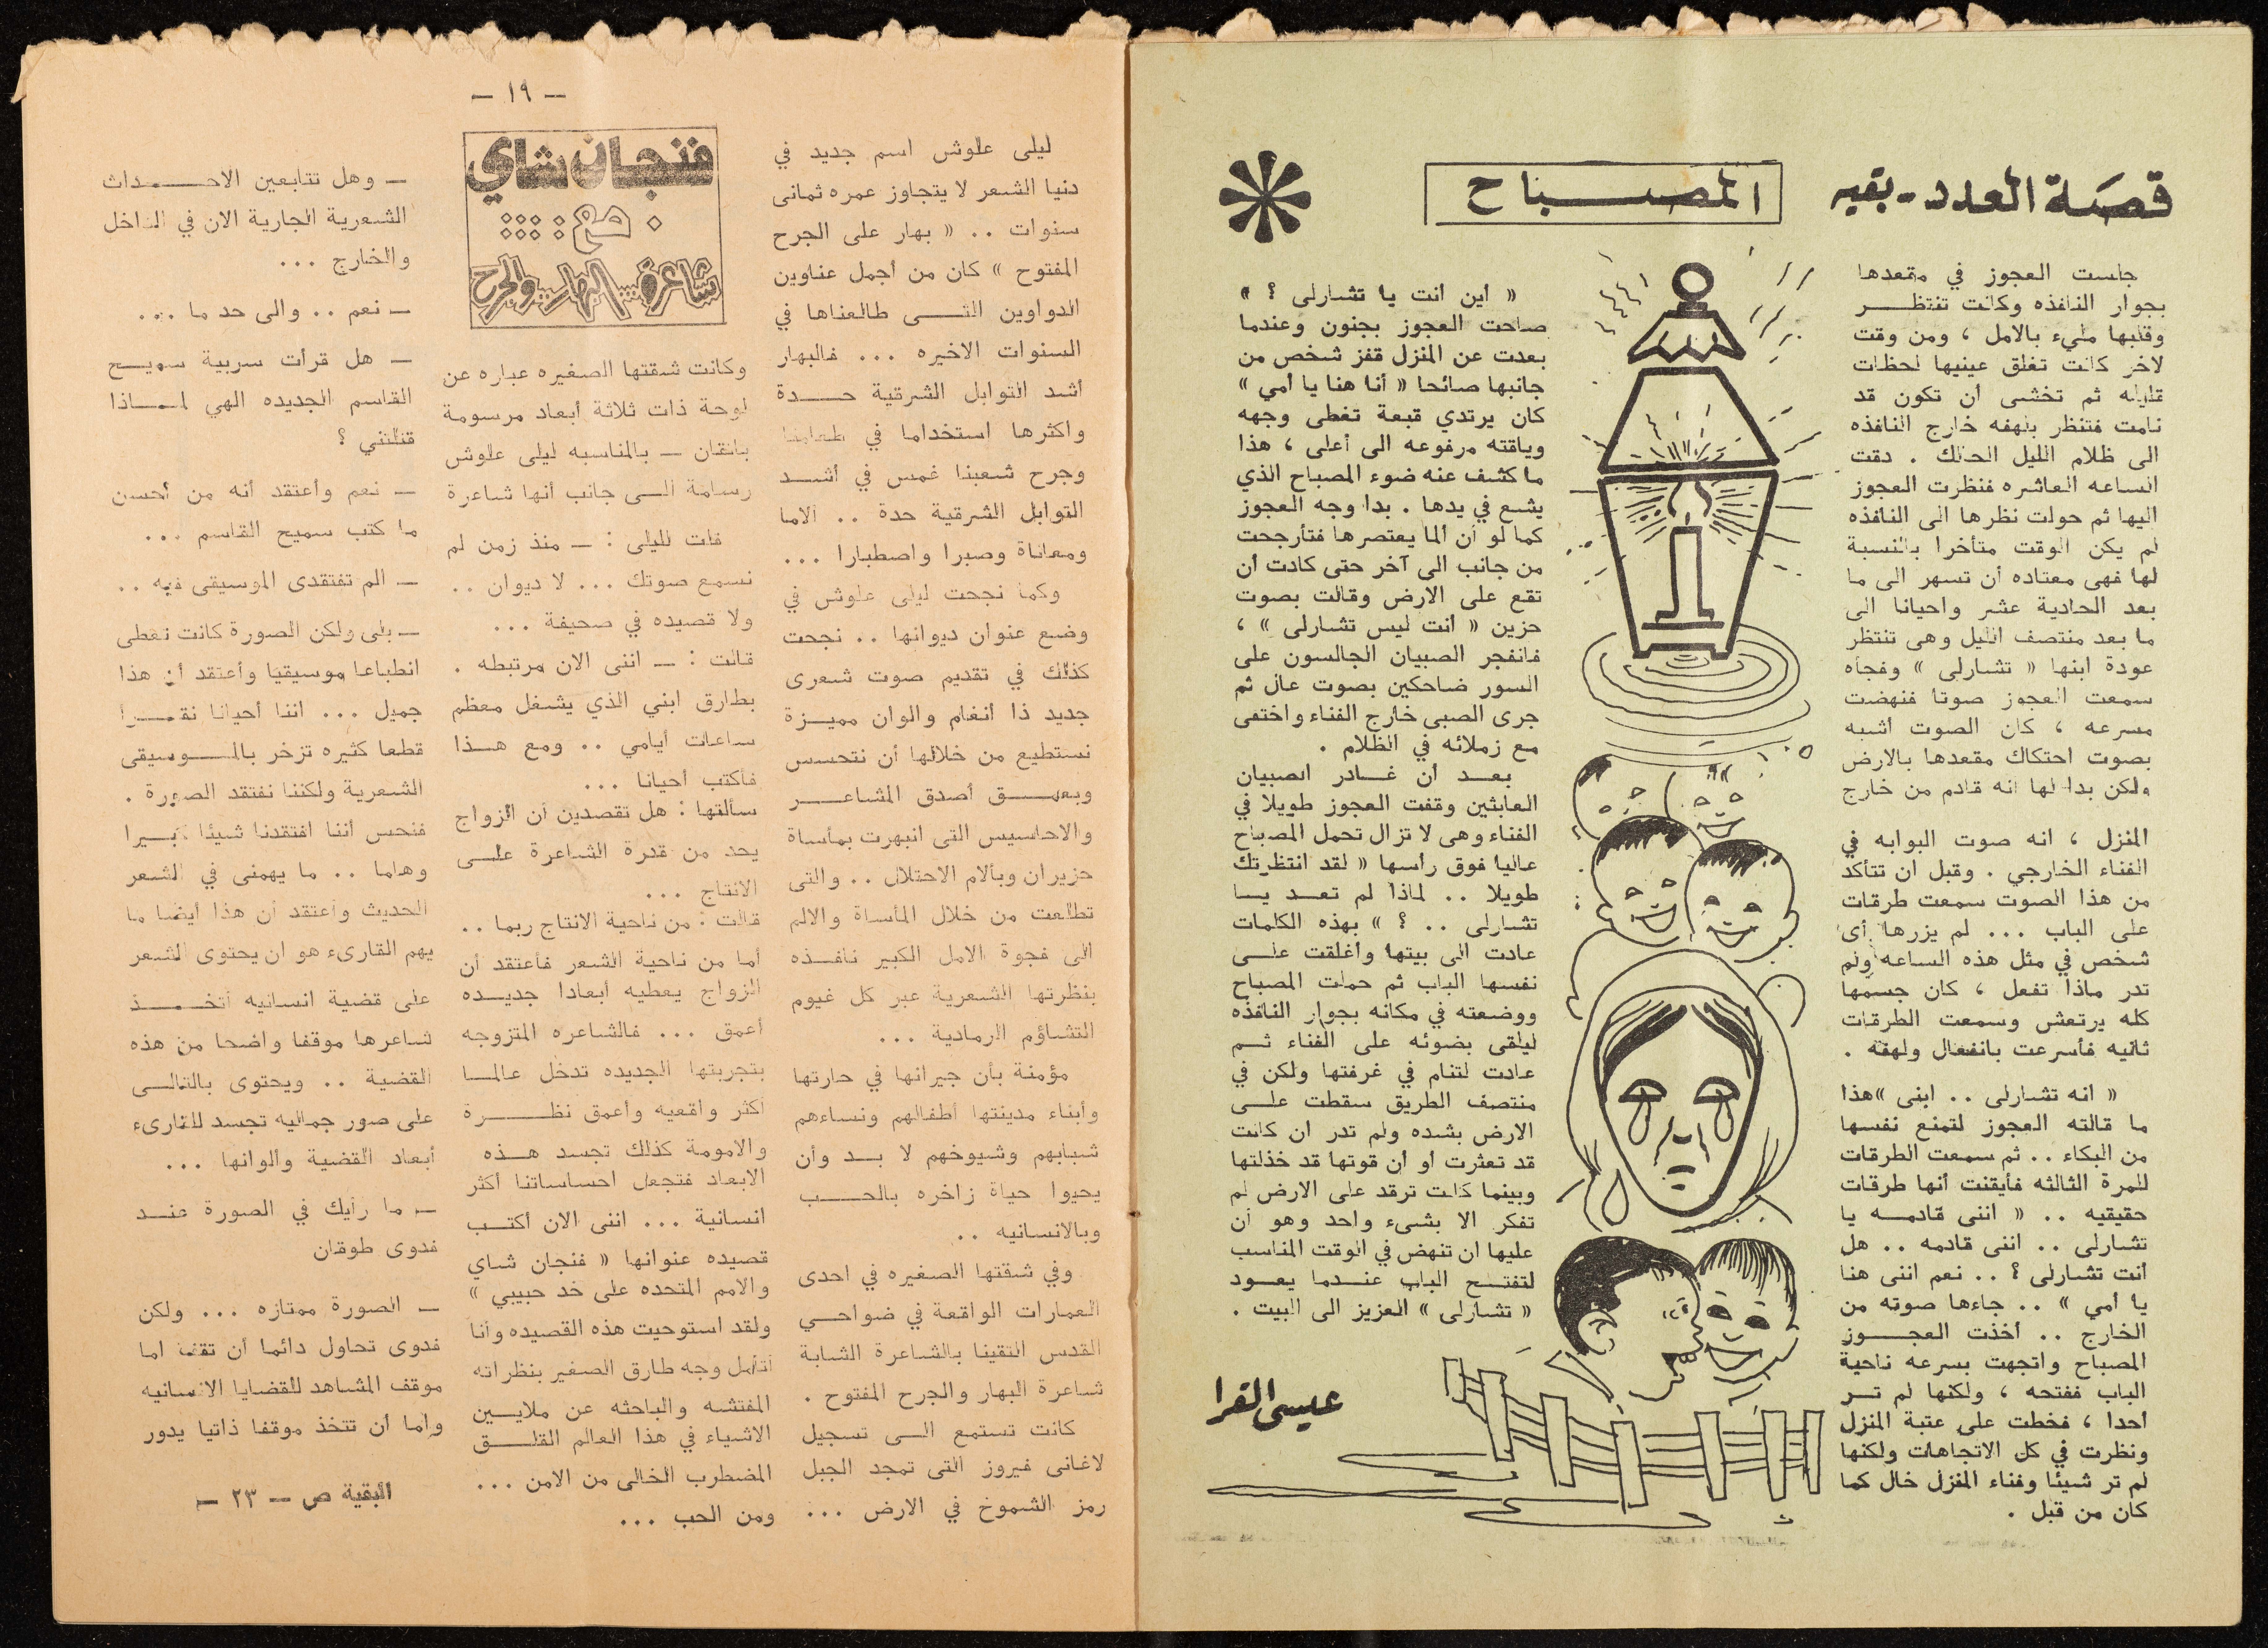 قصة العدد - بقيه
المصباح
جلست العجوز في مقعدها
بجوار النافذه وكانت تنتظر
وقلبها مليء بالامل ، ومن وقت
لاخر كانت تغلق عينيها لحظات
قليله ثم تخشى أن تكون قد
نامت فتنظر بلهفه خارج النافذه
الى ظلام الليل الحالك . دقت
الساعه العاشره فنظرت العجوز
اليها ثم حولت نظرها الى النافذه
لم يكن الوقت متأخرا بالنسبة
لها فهى معتاده أن تسهر الى ما
بعد الحادية عشر واحيانا الى
ما بعد منتصف الليل وهى تنتظر
عودة ابنها « تشارلى » وفجأه
سمعت العجوز صوتا فنهضت
مسرعه ، كان الصوت أشبه
بصوت احتكاك مقعدها بالارض
ولكن بدا لها انه قادم من خارج
المنزل ، انه صوت البوابه في
الفناء الخارجي . وقبل ان تتأكد
من هذا الصوت سمعت طرقات
على الباب ... لم يزرها أى
شخص في مثل هذه الساعه ولم
تدر ماذا تفعل ، كان جسمها
كله يرتعش وسمعت الطرقات
ثانيه فأسرعت بانفعال ولهفة .
« انه تشارلى .. ابنى »هذا
ما قالته العجوز لتمنع نفسها
من البكاء .. ثم سمعت الطرقات
للمرة الثالثه فأيقنت أنها طرقات
حقيقيه .. « اننى قادمه يا
تشارلى .. اننى قادمه .. هل
أنت تشارلى ؟ .. نعم اننى هنا
يا أمي » .. جاءها صوته من
الخارج .. أخذت العجوز
المصباح واتجهت بسرعه ناحية
الباب ففتحه ، ولكنها لم تر
أحدا ، فخطت على عتبة المنزل
ونظرت في كل الاتجاهات ولكنها
لم تر شيئا وفناء المنزل خال كما
كان من قبل .
« أين أنت يا تشارلى ؟ »
صاحت العجوز بجنون وعندما
بعدت عن المنزل قفز شخص من
جانبها صائحا « أنا هنا يا أمي »
كان يرتدي قبعة تغطى وجهه
وياقته مرفوعه الى أعلى ، هذا
ما كشف عنه ضوء المصباح الذي
يشع في يدها . بدا وجه العجوز
كما لو ان ألما يعتصرها فتأرجحت
من جانب الى آخر حتى كادت أن
تقع على الارض وقالت بصوت
حزين « أنت ليس تشارلى » ،
فانفجر الصبيان الجالسون على
السور ضاحكين بصوت عال ثم
جرى الصبى خارج الفناء واختفى
مع زملائه في الظلام .
بعد أن غادر الصبيان
العابثين وقفت العجوز طويلا في
الفناء وهى لا تزال تحمل المصباح
عاليا فوق رأسها « لقد انتظرتك
طويلا .. لماذا لم تعد يا
تشارلى .. ؟ » بهذه الكلمات
عادت الى بيتها وأغلقت على
نفسها الباب ثم حملت المصباح
ووضعته في مكانه بجوار النافذه
ليلقى بضوئه على الفناء ثم
عادت لتنام في غرفتها ولكن في
منتصف الطريق سقطت على
الارض بشده ولم تدر ان كانت
قد تعثرت أو أن قوتها قد خذلتها
وبينما كانت ترقد على الارض لم
تفكر الا بشىء واحد وهو أن
عليها ان تنهض في الوقت المناسب
لتفتح الباب عندما يعود
« تشارلى » العزيز الى البيت .
عيسى القرا
- ١٩ -
فنجان شاي
مع :
شاعرة .. البهار .. والجرح
ليلى علوش اسم جديد في
دنيا الشعر لا يتجاوز عمره ثمانى
سنوات .. « بهار على الجرح
المفتوح » كان من أجمل عناوين
الدواوين التى طالعناها في
السنوات الاخيره ... فالبهار
أشد التوابل الشرقية حدة
واكثرها استخداما في طعامنا
وجرح شعبنا غمس في أشد
التوابل الشرقية حدة .. ألاما
ومعاناة وصبرا واصطبارا ...
وكما نجحت ليلى علوش في
وضع عنوان ديوانها .. نجحت
كذلك في تقديم صوت شعرى
جديد ذا أنغام والوان مميزة
نستطيع من خلالها أن نتحسس
وبعمق أصدق المشاعر
والاحاسيس التى انبهرت بمأساة
حزيران وبألام الاحتلال .. والتى
تطلعت من خلال المأساة والالم
الى فجوة الامل الكبير نافذه
بنظرتها الشعرية عبر كل غيوم
التشاؤم الرمادية ...
مؤمنة بأن جيرانها في حارتها
وأبناء مدينتها أطفالهم ونساءهم
شبابهم وشيوخهم لا بد وأن
يحيوا حياة زاخره بالحب
وبالانسانيه ..
وفي شقتها الصغيره في احدى
العمارات الواقعة في ضواحي
القدس التقينا بالشاعرة الشابة
شاعرة البهار والجرح المفتوح .
كانت تستمع الى تسجيل
لاغانى فيروز التى تمجد الجبل
رمز الشموخ في الارض ...
وكانت شقتها الصغيره عباره عن
لوحة ذات ثلاثة أبعاد مرسومة
باتقان — بالمناسبه ليلى علوش
رسامة الى جانب أنها شاعرة
قلت لليلى : — منذ زمن لم
نسمع صوتك ... لا ديوان ..
ولا قصيده في صحيفة ...
قالت : — اننى الان مرتبطه .
بطارق ابني الذي يشغل معظم
ساعات أيامي .. ومع هذا
فأكتب أحيانا ...
سألتها : هل تقصدين أن الزواج
يحد من قدرة الشاعرة على
الانتاج ...
قالت : من ناحية الانتاج ربما ..
أما من ناحية الشعر فأعتقد أن
الزواج يعطيه أبعادا جديده
أعمق ... فالشاعره المتزوجه
بتجربتها الجديده تدخل عالما
أكثر واقعيه وأعمق نظرة
والامومة كذلك تجسد هذه
الابعاد فتجعل احساساتنا أكثر
انسانية ... اننى الان أكتب
قصيده عنوانها « فنجان شاي
والامم المتحده على خد حبيبي »
ولقد استوحيت هذه القصيده وأنا
أتأمل وجه طارق الصغير بنظراته
المفتشه والباحثه عن ملايين
الاشياء في هذا العالم القلق
المضطرب الخالى من الامن ...
ومن الحب ...
— وهل تتابعين الاحداث
الشعرية الجارية الان في الداخل
والخارج ...
— نعم .. والى حد ما ...
— هل قرأت سربية سميح
القاسم الجديده الهي لماذا
قتلتني ؟
— نعم وأعتقد أنه من أحسن
ما كتب سميح القاسم ...
— الم تفتقدى الموسيقى فيه ..
— بلى ولكن الصورة كانت تعطى
انطباعا موسيقيا وأعتقد أن هذا
جميل ... اننا أحيانا نقرأ
قطعا كثيره تزخر بالموسيقى
الشعرية ولكننا نفتقد الصورة .
فنحس أننا افتقدنا شيئا كبيرا
وهاما .. ما يهمنى في الشعر
الحديث وأعتقد أن هذا أيضا ما
يهم القارىء هو ان يحتوى الشعر
على قضية انسانيه أتخذ
شاعرها موقفا واضحا من هذه
القضية .. ويحتوى بالتالى
على صور جماليه تجسد للقارىء
أبعاد القضية والوانها ...
— ما رأيك في الصورة عند
فدوى طوقان
— الصورة ممتازه ... ولكن
فدوى تحاول دائما أن تقف اما
موقف المشاهد للقضايا الانسانيه
وأما أن تتخذ موقفا ذاتيا يدور
البقية ص — ٢٣ —